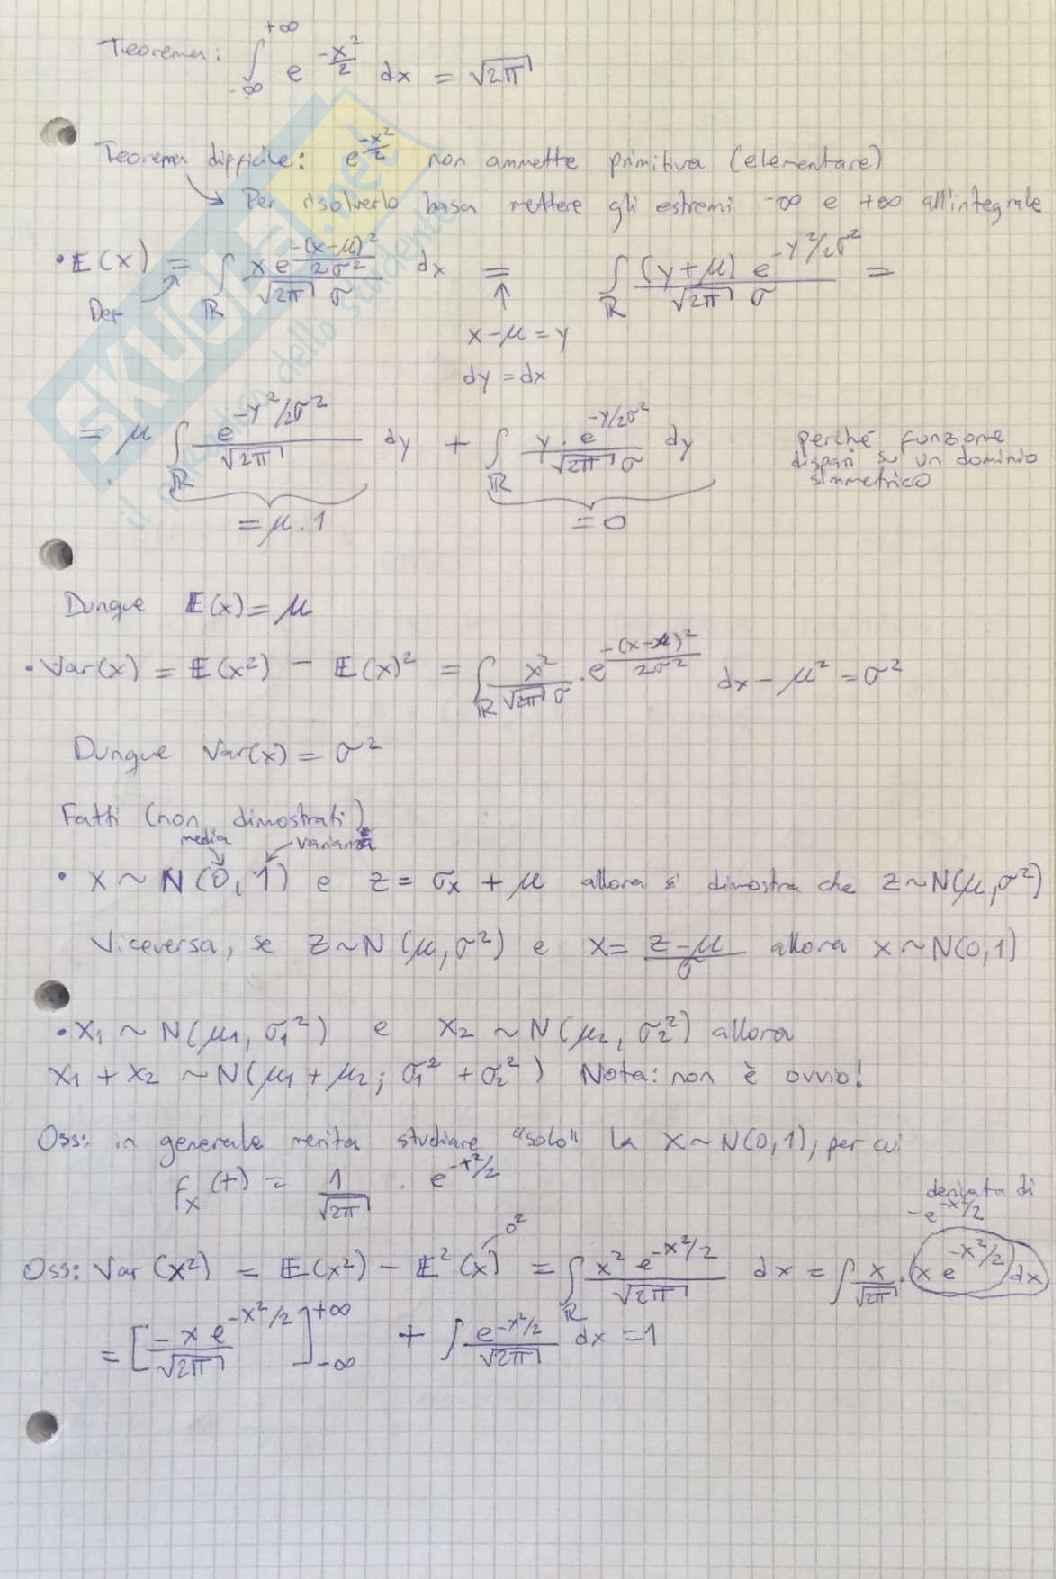 Teorema: ∫_{-∞}^{+∞} e^{-x²/2} dx = √2π
Teorema difficile: e^{-x²/2} non ammette primitiva (elementare)
Per risolverlo basa mettere gli estremi -∞ e +∞ all'integrale
• E(x) = ∫_R x e^{-(x-μ)²/2σ²} / √2π σ dx = ∫_R (y+μ) e^{-y²/2σ²} / √2π σ =
Der
x-μ = y
dy = dx
= μ ∫_R e^{-y²/2σ²} / √2π dy + ∫_R y · e^{-y/2σ²} / √2π σ dy
perché funzione
dispari su un dominio
simmetrico
= μ · 1
= 0
Dunque E(x) = μ
• Var(x) = E(x²) - E(x)² = ∫_R x² / √2π σ · e^{-(x-μ)²/2σ²} dx - μ² = σ²
Dunque Var(x) = σ²
Fatti (non dimostrati)
media varianza
• x ~ N(0,1) e z = σx + μ allora si dimostra che z~N(μ,σ²)
Viceversa, se z~N(μ,σ²) e x = (z-μ)/σ allora x~N(0,1)
• x₁ ~ N(μ₁, σ₁²) e x₂ ~ N(μ₂, σ₂²) allora
x₁ + x₂ ~ N(μ₁ + μ₂; σ₁² + σ₂²) Nota: non è ovvio!
Oss: in generale merita studiare "solo" la x~N(0,1), per cui
f_x(t) = 1/√2π · e^{-x²/2}
derivata di
-e^{-x²/2}
0²
Oss: Var(x²) = E(x²) - E²(x) = ∫_R x² e^{-x²/2} / √2π dx = ∫ x/√2π · x e^{-x²/2} dx
= [-x e^{-x²/2} / √2π]_{-∞}^{+∞} + ∫ e^{-x²/2} / √2π dx = 1
SKUOLA.net